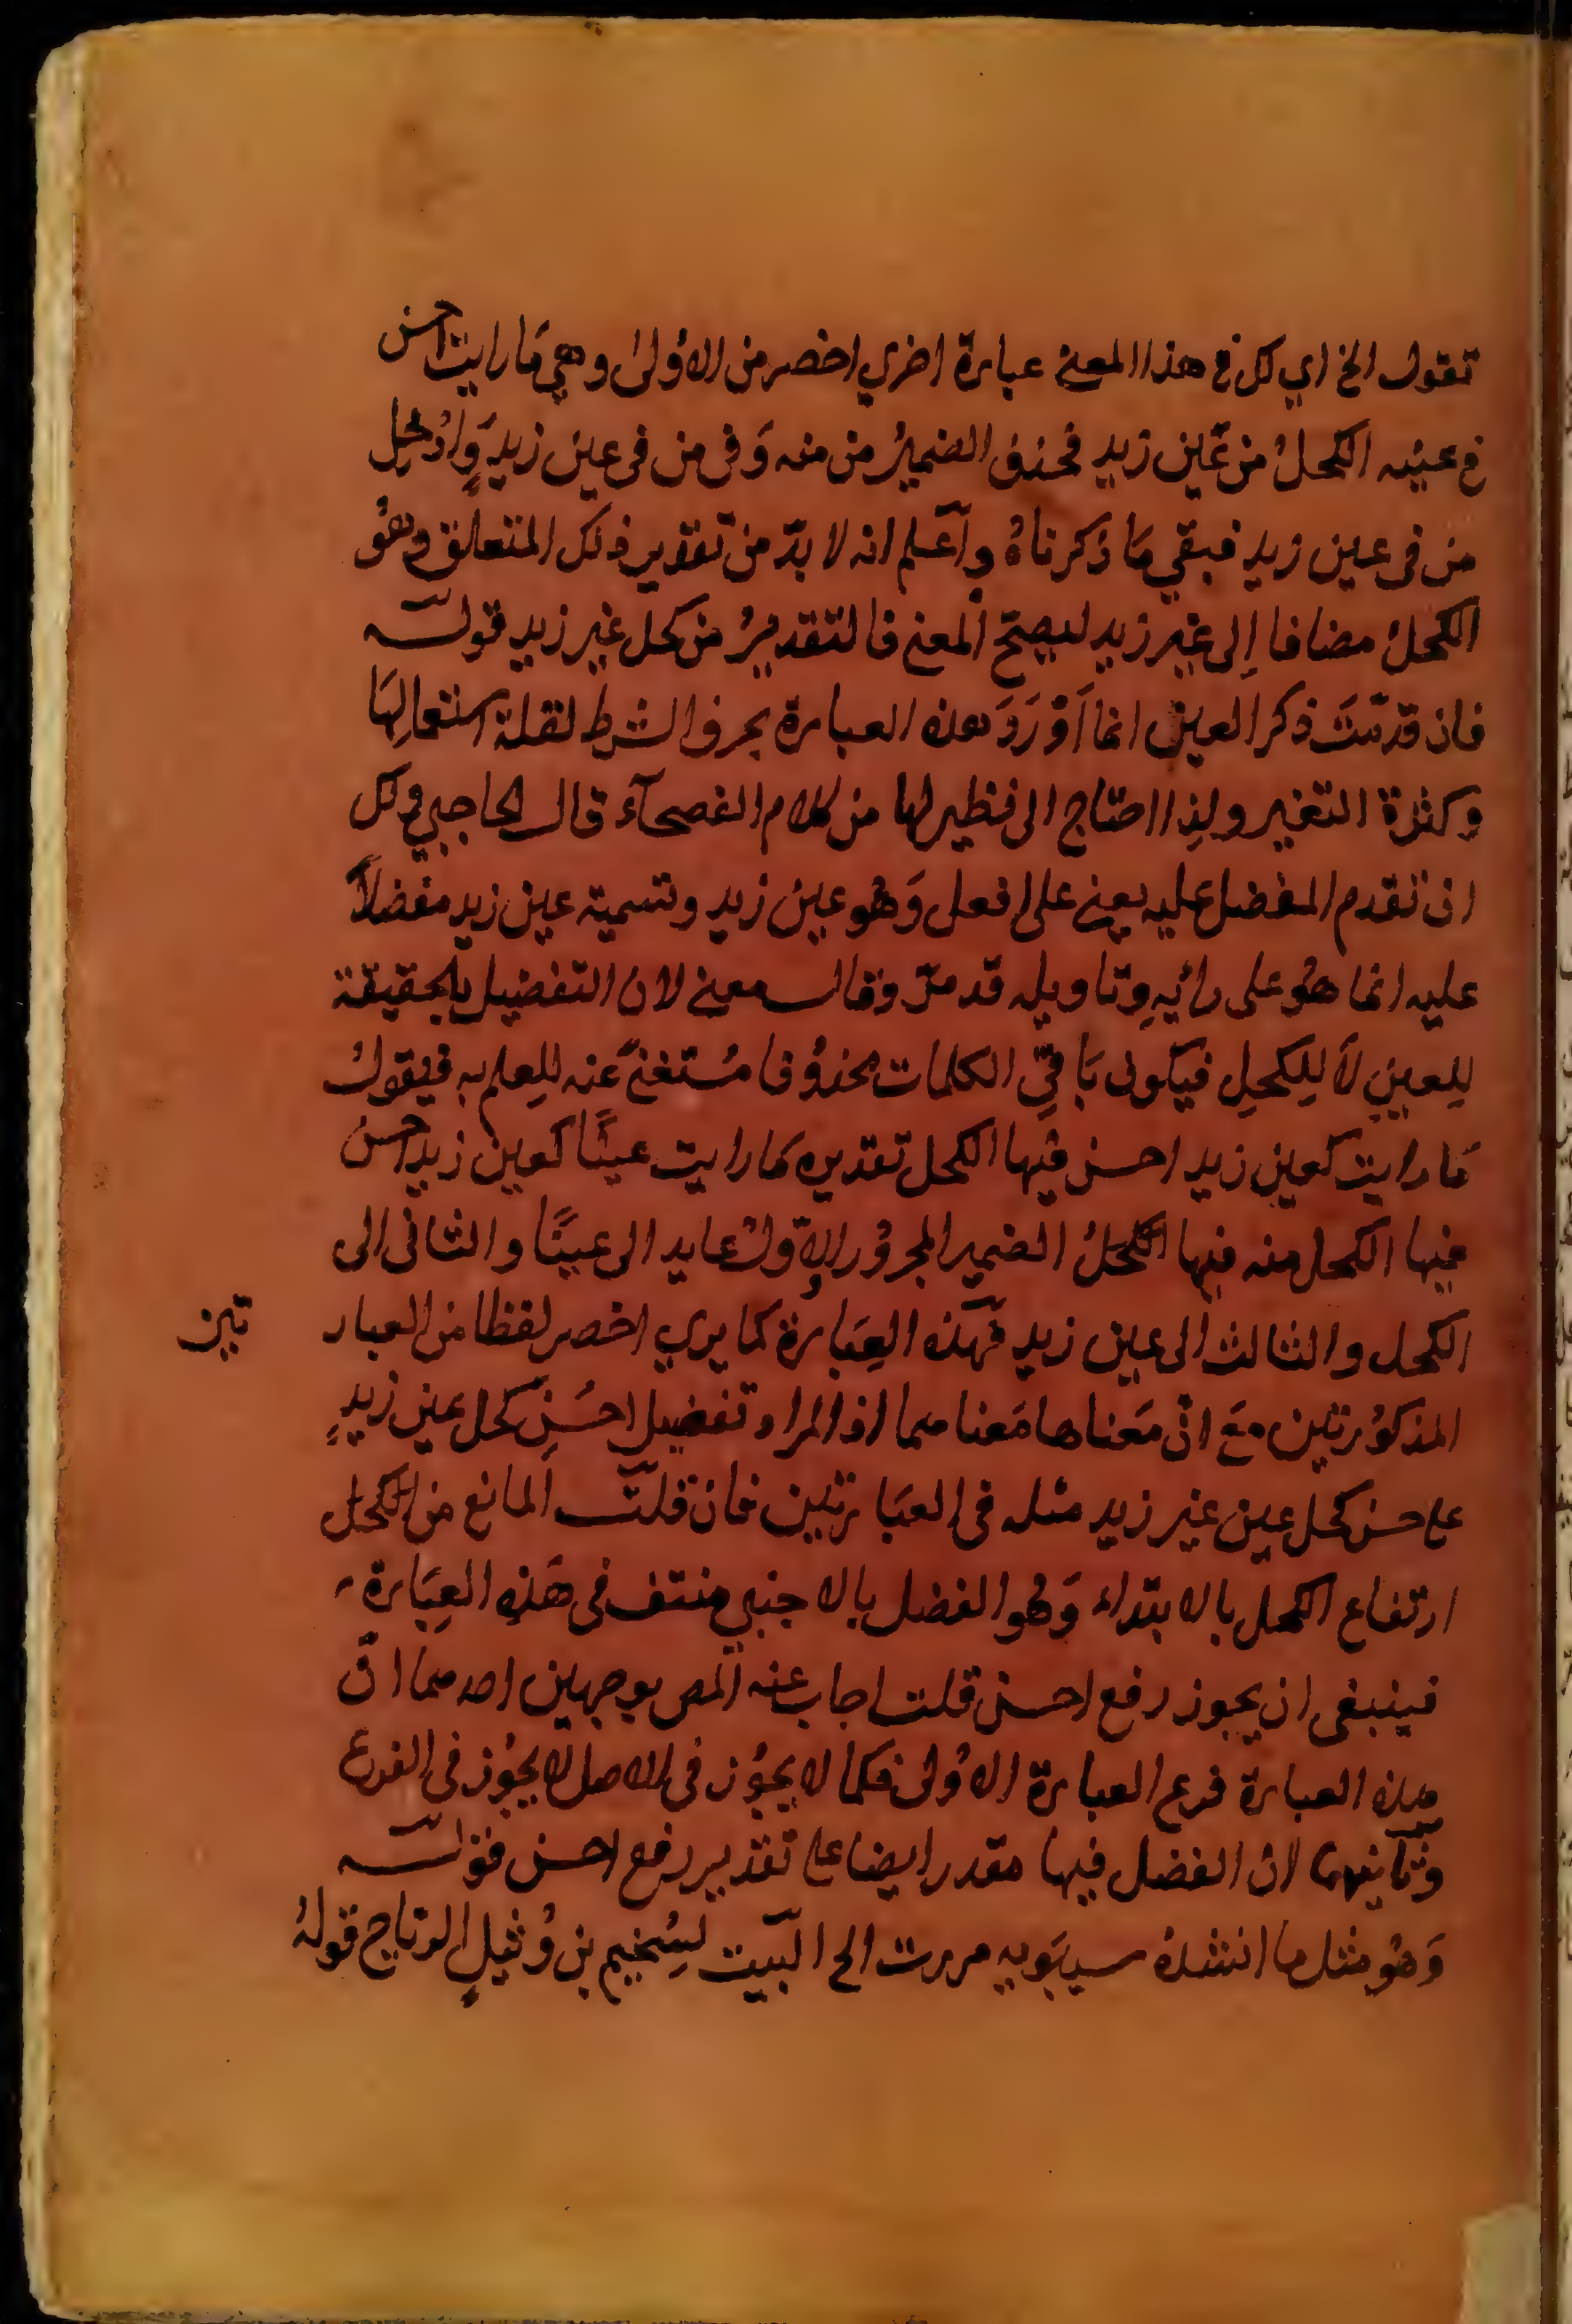 تقول الخ اي لك في هذا المعنى عبارة اخري اخصر من الاولى وهي مَا رايت احسن
في عينه الكحلُ من عَين زيد فحذف الضميرُ من منه وَفى من فى عين زيدٍ وَادخِل
من فى عين زيد فبقي مَا ذكرناهُ واعلم انه لا بدّ من تقدير ذلك المتعلق وهُو
الكحلُ مضافا اِلى غير زيد ليصحّ المعنى فالتقديرُ من كحل غير زيد قولــه
فان قدّمتَ ذكر العين انما اَوْرَدَ هذه العبارة بحرف الشرط لقلة استعمالِهَا
وكثرة التغير ولذا احتاج الى نظير لها من كلام الفصحآء قال الحاجبي ولك
ان تقدم المفضل عليه يعني على افعل وَهُو عين زيد وتسمية عين زيد مفضلاً
عليه انما هُو على رائيهِ وتاويله قد مرّ وقال معنى لان التفضيل بالحقيقة
لِلعينِ لاَ لِلكحلِ فيكون بَاقي الكلمات محذوُفا مُستغنىً عنه لِلعِلم به فيقولُ
مَا رايت كعين زيد احسن فيها الكحل تقديره مَا رايت عينًا كعين زيد احسن
فيها الكحل منه فيها الكُحلُ الضمير المجروُر الاوّلُ عايد الى عينًا والثانى الى
الكحل والثالث الى عين زيد فهَذه العِبَارة كما يري اخصر لفظا من العبار تين
المذكوُرتين معَ انّ مَعناها مَعناهما اذ المراد تفضيل احسَنِ كحل عين زيدٍ
على حسن كحل عين غير زيد مثله فى العبَارتين فان قلتَ المانع من الكحل
ارتفاع الكحل بالابتداء وَهُو الفصل بالاجنبي منتف فى هَذهِ العِبَارة
فينبغى ان يجوز رفع احسن قلت اجاب عنه المص بوجهين احدهما انّ
هذه العبارة فرع العبارة الاوُلى فكما لا يجوُز فى الاصل لا يجوُز فى الفرع
وثانيهما ان الفصل فيها مقدر ايضا على تقدير رفع احسن قولــه
وَهُو مثل ما انشدهُ سيبَويه مررت الخ البَيت لِسُحَيم بن وُثيلٍ الرياحي قولهُ